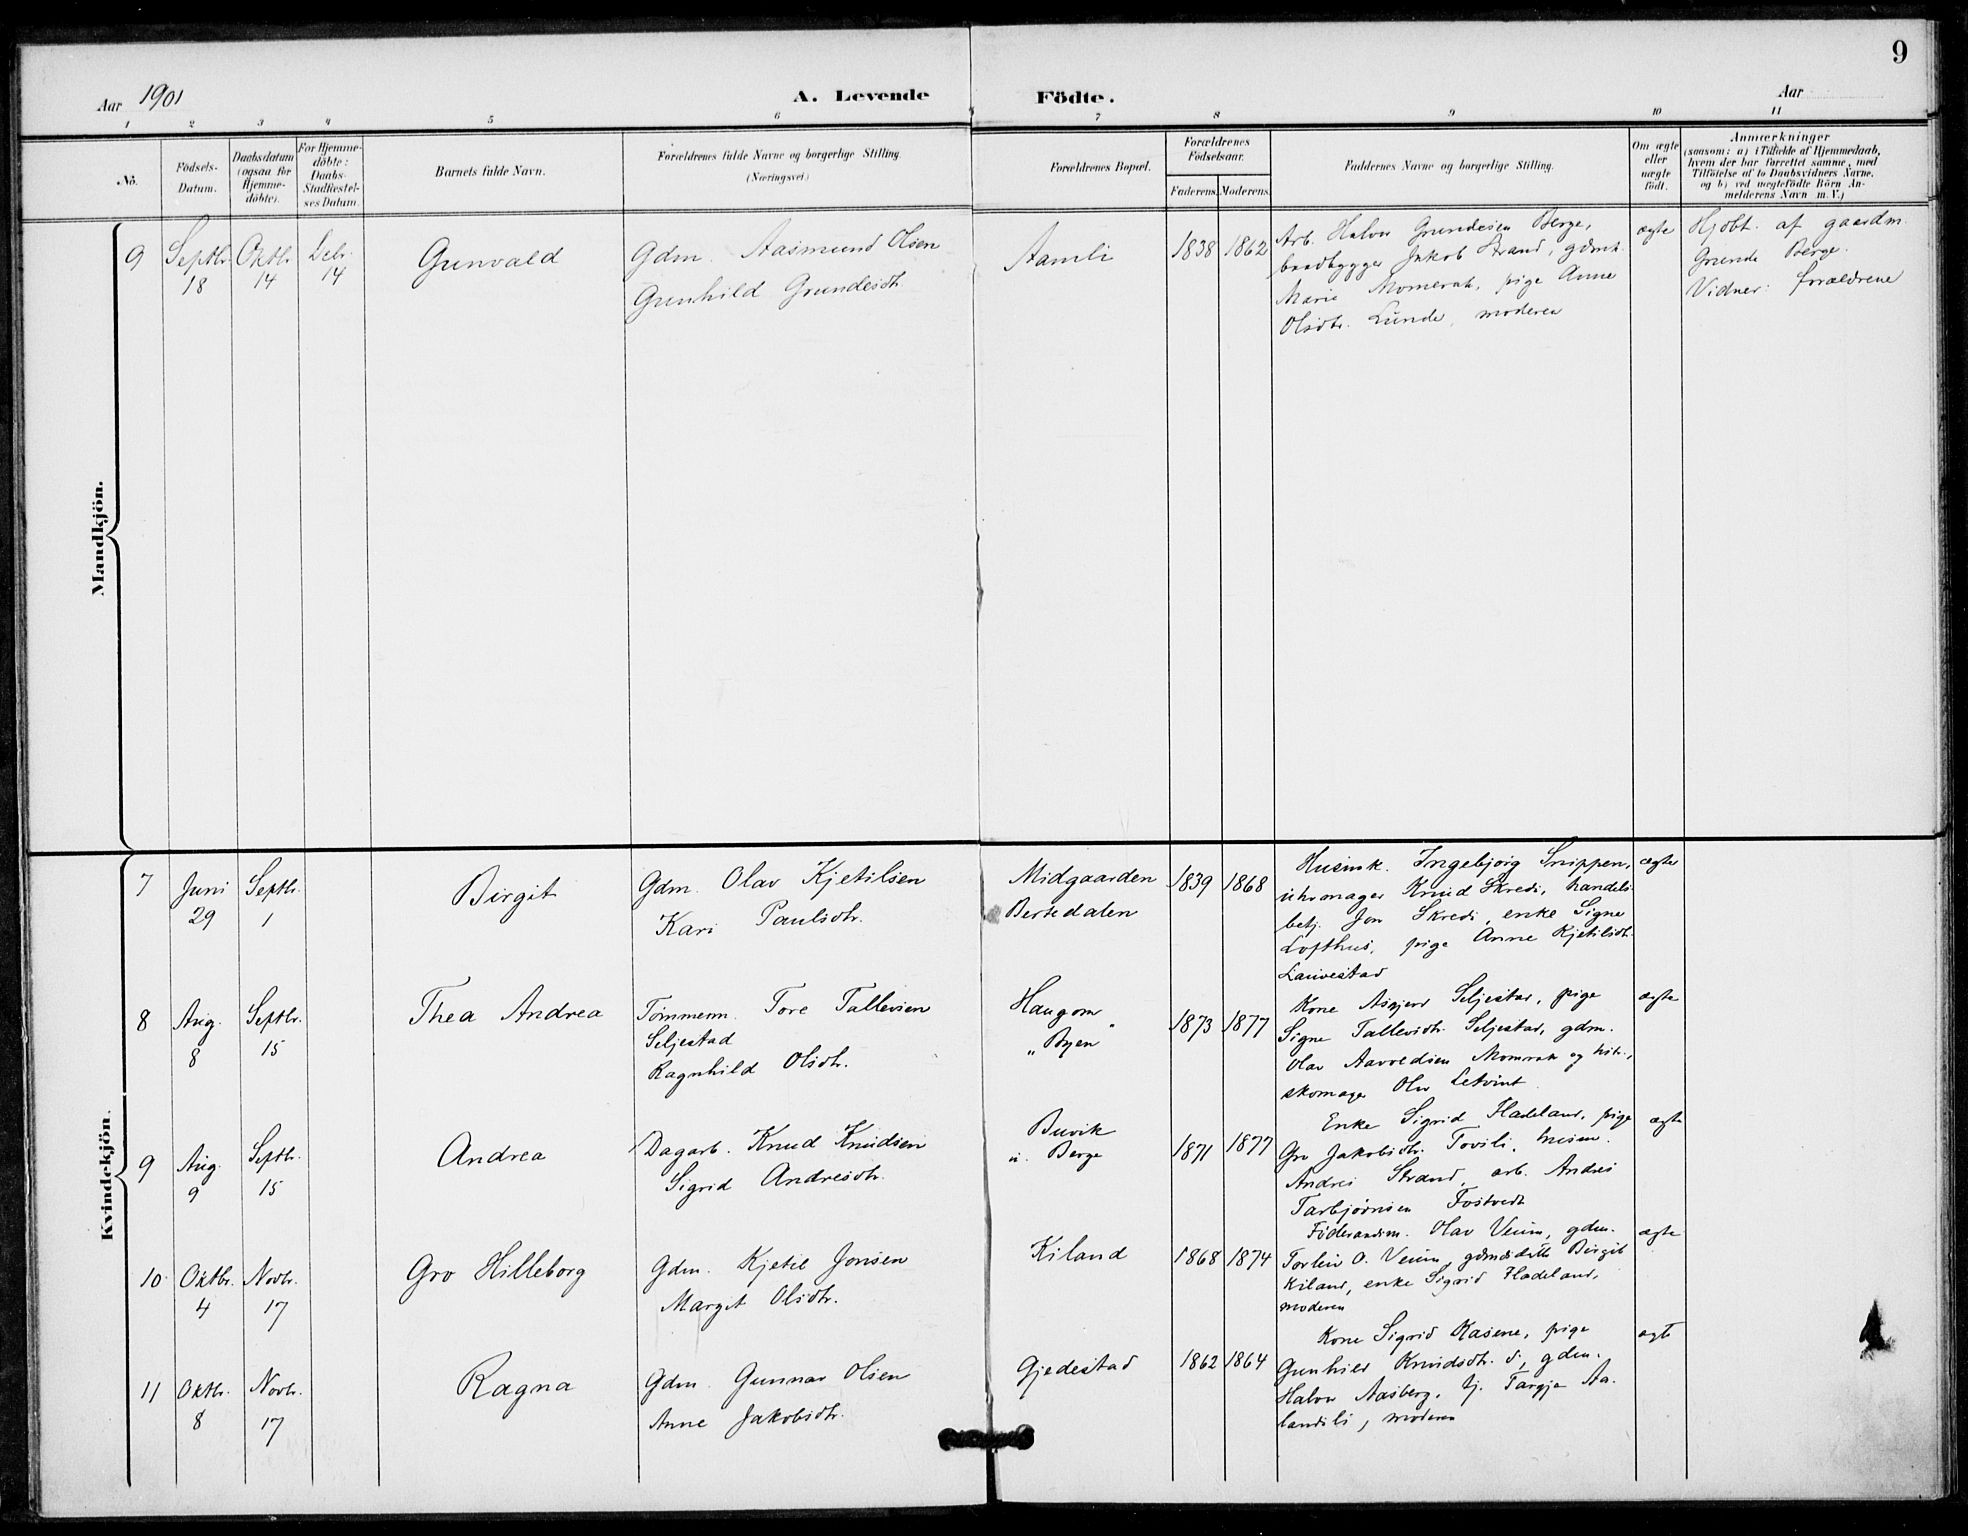 9
Aar 1901
A. Levende Födte.
Aar
1 2 3 4 5 6 7 8 9 10 11
No.
Födsels-Datum.
Daabsdatum (ogsaa for Hjemme-döbte).
For Hjemme-döbte: Daabs-Stadfæstel-ses Datum.
Barnets fulde Navn.
Forældrenes fulde Navne og borgerlige Stilling (Næringsvei.)
Forældrenes Bopæl.
Forældrenes Födselsaar.
Faderens. Moderens.
Faddernes Navne og borgerlige Stilling.
Om ægte eller uægte födt.
Anmærkninger
(saasom: a) i Tilfælde af Hjemmedaab,
hvem der har forrettet samme, med
Tilföielse af to Daabsvidners Navne.
og b) ved uægtefödte Börn An-
melderens Navn m. V.)
Mandkjön.
9 Septbr. 18 Oktbr. 14 14 Gunvald
Gdm. Aasmund Olsen
Gunhild Grundesdtr
Aamli
1838 1862
Arb. Halvor Grundesen Berge,
baadbygger Jakob Strand, gdmk.
Marie Momrak, pige Anne
Olsdtr. Lunde, moderen
ægte
Hjdbt. af gaardm.
Grunde Berge.
Vidner: forældrene
Kvindekjön.
7 Juni 29 Septbr. 1 Birgit
Gdm. Olav Kjetilsen
Kari Paulsdtr.
Midgaarden
Bertedalen
1839 1868
Husmk. Ingebjørg Snippen,
uhrmager Knud Skredi, handels
betj. Jon Skredi, enke Signe
Lofthus, pige Anne Kjetilsdtr.
Lauvestad
ægte
8 Aug. 8 Septbr. 15 Thea Andrea
Tømmerm. Tore Tallevsen
Seljestad
Ragnhild Olsdtr.
Haugom
" Byen
1873 1877
Kone Asgjerd Seljestad, pige
Signe Tallevsdtr. Seljestad, gdm.
Olav Aavoldsen Momrak og
skomager Olav
ægte
9 Aug. 9 Septbr. 15 Andrea
Dagarb. Knud Knudsen
Sigrid Andresdtr.
Buvik
u. Berge
1871 1877
Enke Sigrid Fladeland, pige
Gro Jakobsdtr. Tovsli, husm.
Andres Strand, arb. Andres
Tarbjørnsen Fostvedt
ægte
10 Oktbr. 4 Novbr. 17 Gro Hilleborg
Gdm. Kjetil Jonsen
Margit Olsdtr.
Kiland
1868 1874
Föderaadsm. Olav Veum, gdm.
Torleiv O. Veum, Birgit
Kiland, enke Sigrid Fladeland,
moderen
ægte
11 Oktbr. 8 Novbr. 17 Ragna
Gdm. Gunnar Olsen
Anne Jakobsdtr.
Gjedestad
1862 1864
Kone Sigrid Kasene, pige
Gunhild Knudsdtr. , gdm.
Halvor Aasberg, tj. Targje Aa-
landsli, moderen
ægte